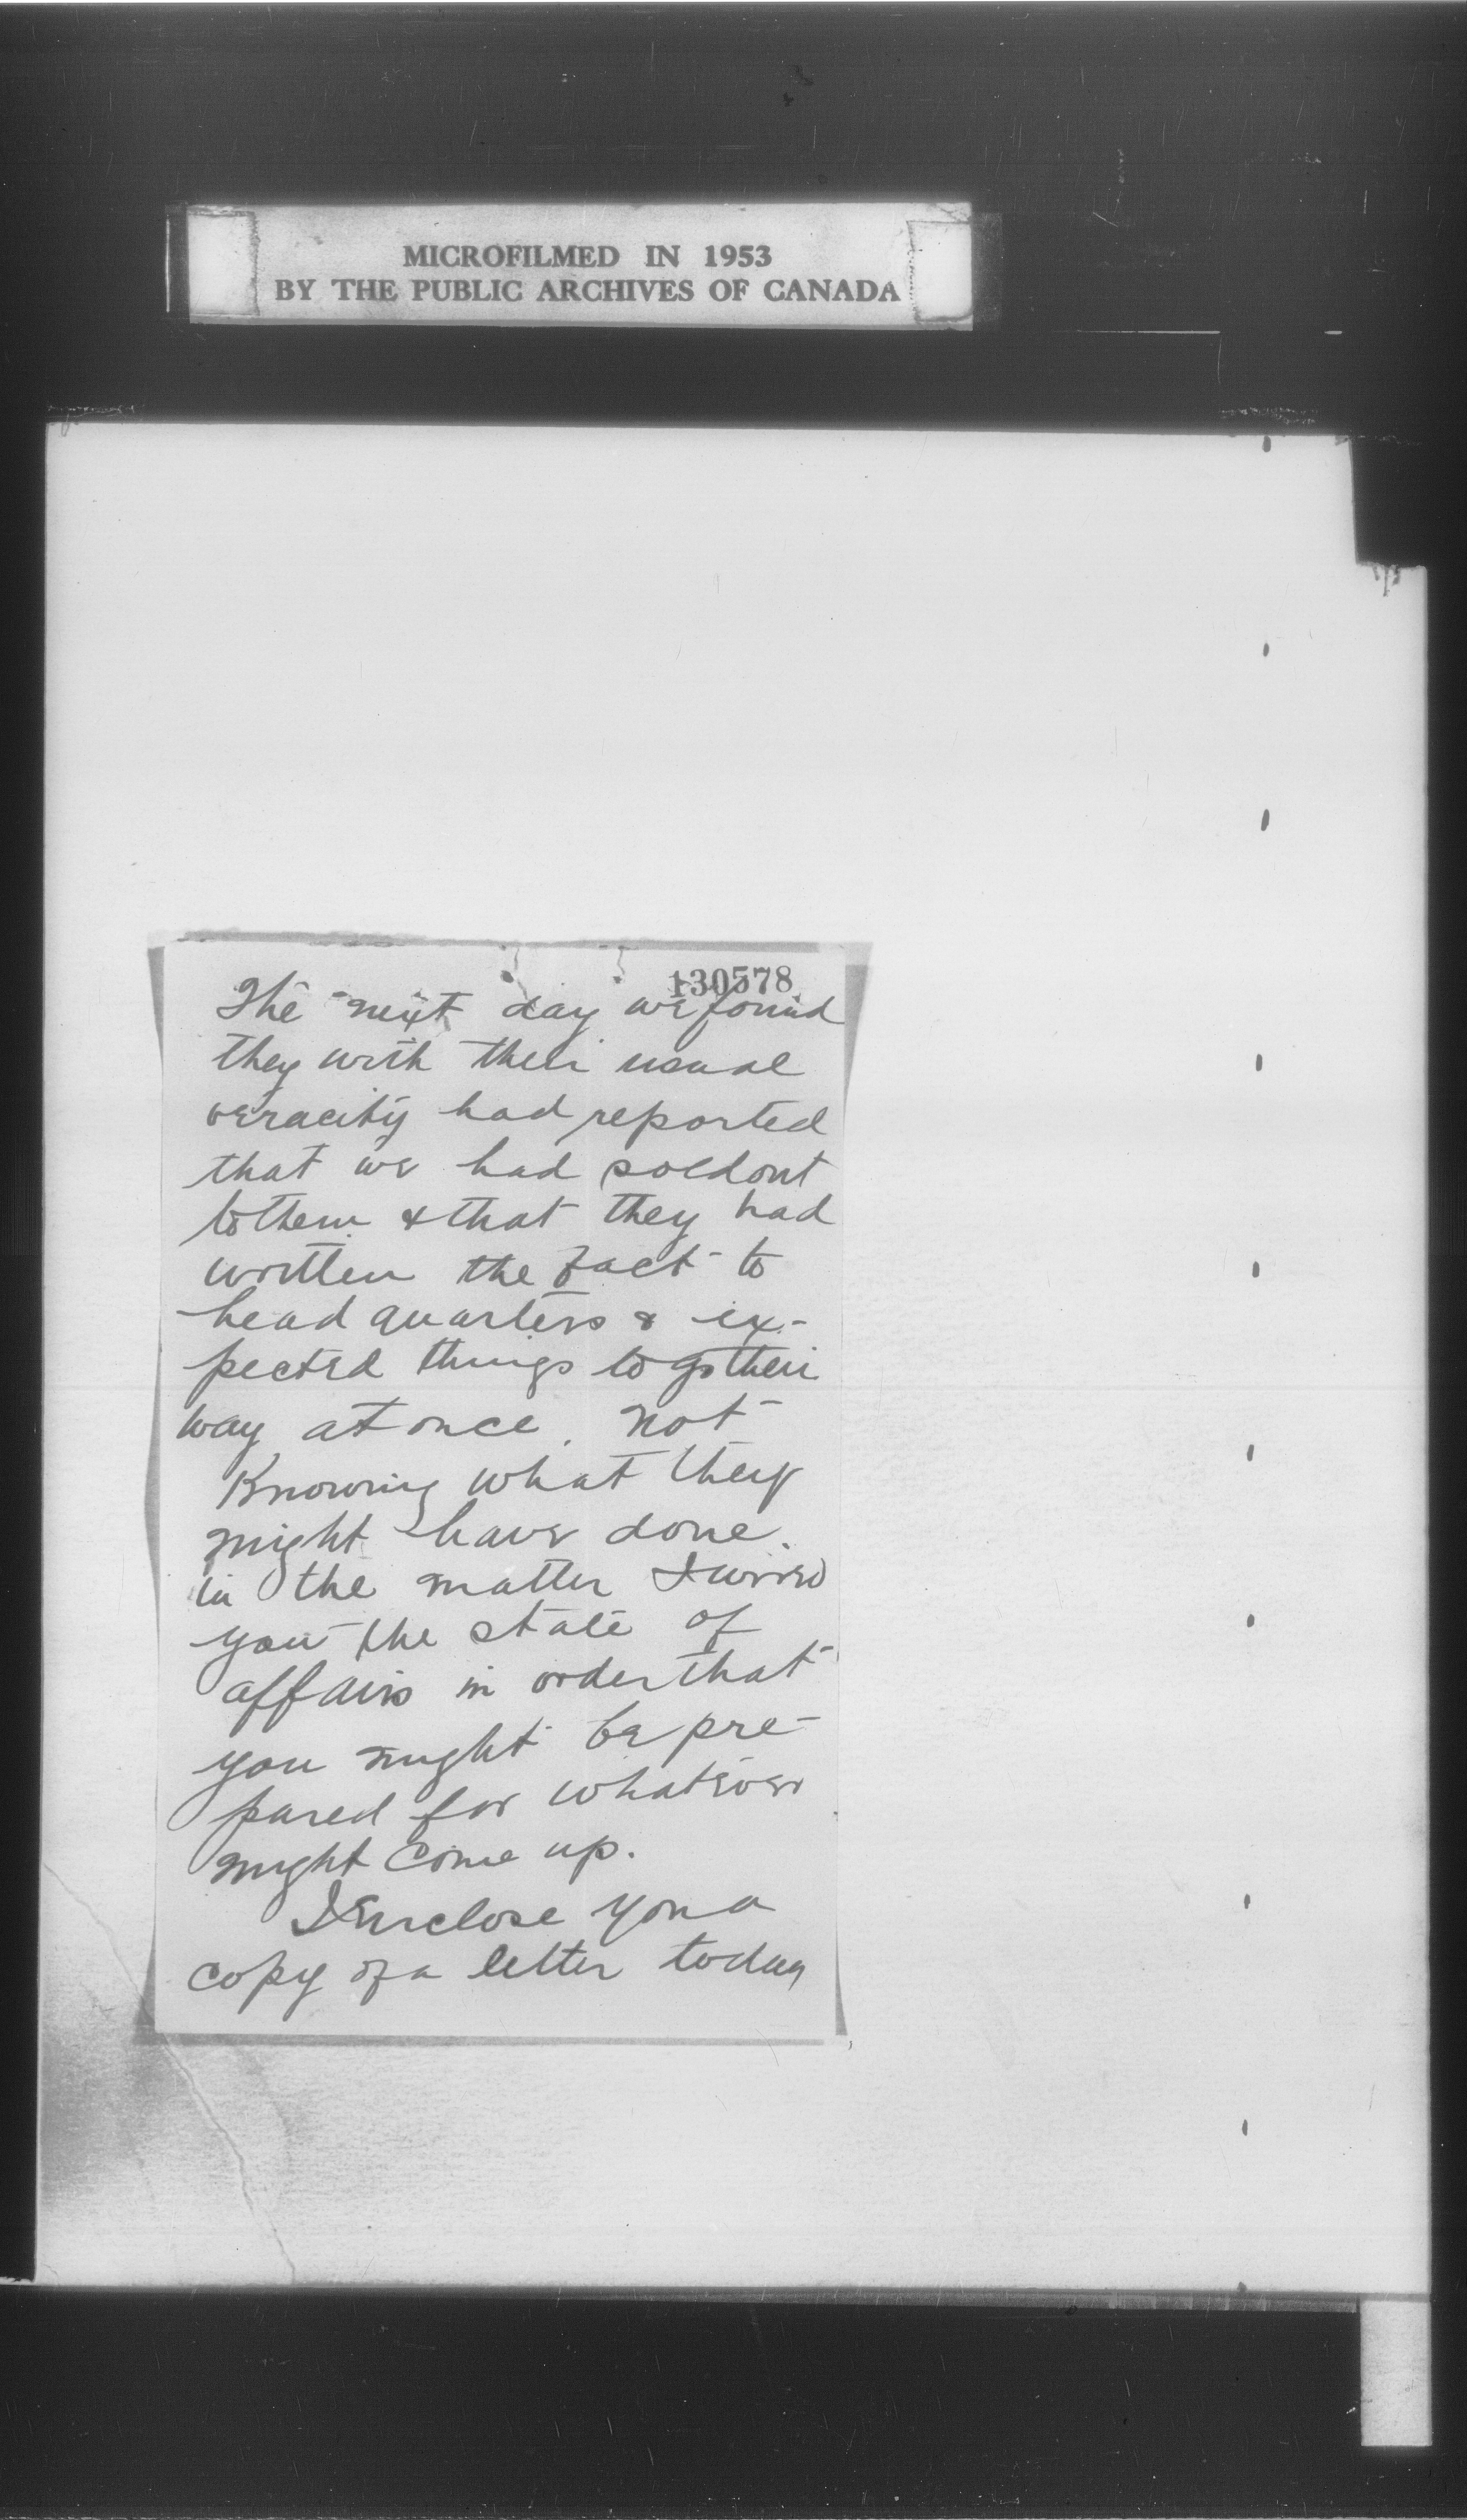 MICROFILMED IN 1953
BY THE PUBLIC ARCHIVES OF CANADA
130578
The next day we found
they with their usual
veracity had reported
that we had sold out
to them & that they had
written the fact to
head quarters & ex-
pected things to go their
way at once. Not
Knowing what they
might have done.
in the matter I wired
you the state of
affairs in order that
you might be pre-
pared for whatever
might come up.
I Enclose you a
copy of a letter today